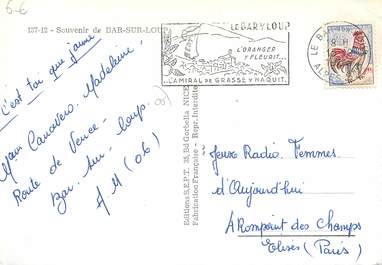 6-6
137-12 - Souvenir de BAR-SUR-LOUP
C'est toi que j'aime
Mam Canavero. Madeleine.
Route de Vence
Bar. sur. loup.
A M (06)
Editions S.E.P.T. 35, Bd Gorbella NICE
Fabrication Française - Repr. Interdite
LE BAR/LOUP
L'ORANGER
Y FLEURIT...
...L'AMIRAL DE GRASSE Y NAQUIT.
LE BAR
8-H
Jeux Radio Femmes
d'Aujourd'hui
A Rompoint des Champs
Elisés (Paris)